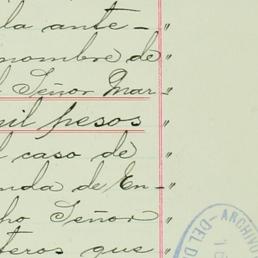 la ante-"
nombre de "
Señor Mar-"
mil pesos "
l caso de "
nda de En-"
ho Señor "
teros que "
ARCHIVO
DEL D